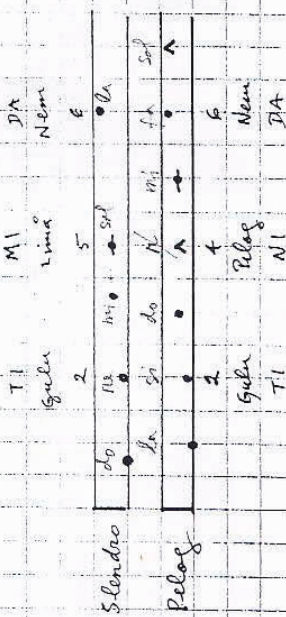 TI MI DA
Gulu Limå Nem
2 5 6
Slendro do Re mi sol la
Pelog la si do ré mi fa sol
2 4 6
Gulu Pelog Nem
TI NI DA